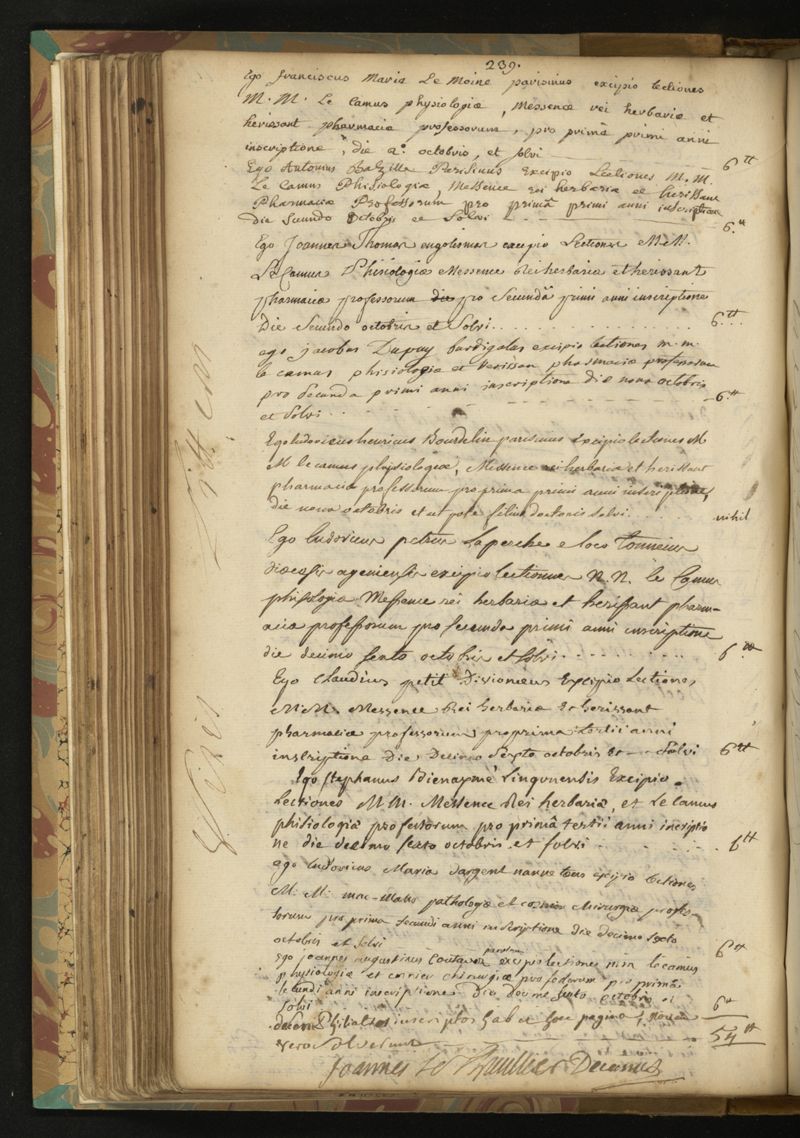 239.
Ego franciscus Maria Le Moine parisinus excipio lectiones
M. M. Le Camus physiologiæ, Messence rei herbariæ et
herissant pharmaciæ professorum, pro primâ primi anni
inscriptione, die 2ª octobris, et solvi 6 tt
Ego Antonius Parisinus Excipio Lectiones M. M.
Le Camus Phisiologiæ, Messence rei herbariæ et herissant
Pharmaciæ Professorum pro primâ primi anni inscriptione
die Secundo octobris et Solvi 6. tt
Ego Joannes Thomas engolismas excipio Lectiones M. M.
Le Camus Phisiologiæ Messence Rei herbariæ et herissant
pharmaciæ professorum die pro Secundâ primi anni inscriptione
Die Secundo octobris et Solvi 6 tt
ego jacobus Dupuy burdigalas excipio lectiones m. m.
le camus phisiologiæ et herissan pharmaciæ professorum
pro secunda primi anni inscriptione die nona octobris
et solvi 6 tt
Ego ludovicus henricus Bourdelin parisinus excipio lectiones M
M le camus physiologiæ, Messence rei herbariæ et herissant
pharmaciæ professorum pro prima primi anni inscriptione,
die nona octobris et ut pote filius doctoris solvi nihil
Ego ludovicus petrus laperche e loco Tonneins
diœcesis agenensis excipio lectiones M. M. le Camus
phisologiæ Messence rei herbariæ et herissant pharm-
aciæ professorum pro secunda primi anni inscriptione
die decimo sexto octobris et solvi 6 tt
Ego Claudius petit Divionæus Excipio Lectiones
M M. Messence Rei herbariæ et herissant
pharmaciæ professorum pro prima tertii anni
inscriptione die Decimo Sexto octobris et Solvi 6 tt
Ego stephanus Bienaymé Lingonensis Excipio
Lectiones M. M. Messence Rei herbariæ, et Le Camus
phisiologiæ professorum pro primâ tertii anni inscriptio
ne die decimo sexto octobris et solvi 6 tt
ego ludovicus Maria Dargent nannetensis excipio lectiones
M. M. mac-mahon pathologiæ et chirurgiæ profes-
sorum pro prima secundi anni inscriptione die decimo sexto
octobris et solvi 6 tt
Ego joannes augustinus Coutavoz excipio lectiones m m le camus
parisinus
physiologiæ et chirurgiæ professorum pro primâ
secundi anni inscriptione die decimo sexto octobris et
solvi 6 tt
decem inscriptos habet hæc pagina, novem
vero solverunt 54 tt
Joannes Le Thieullier Decanus